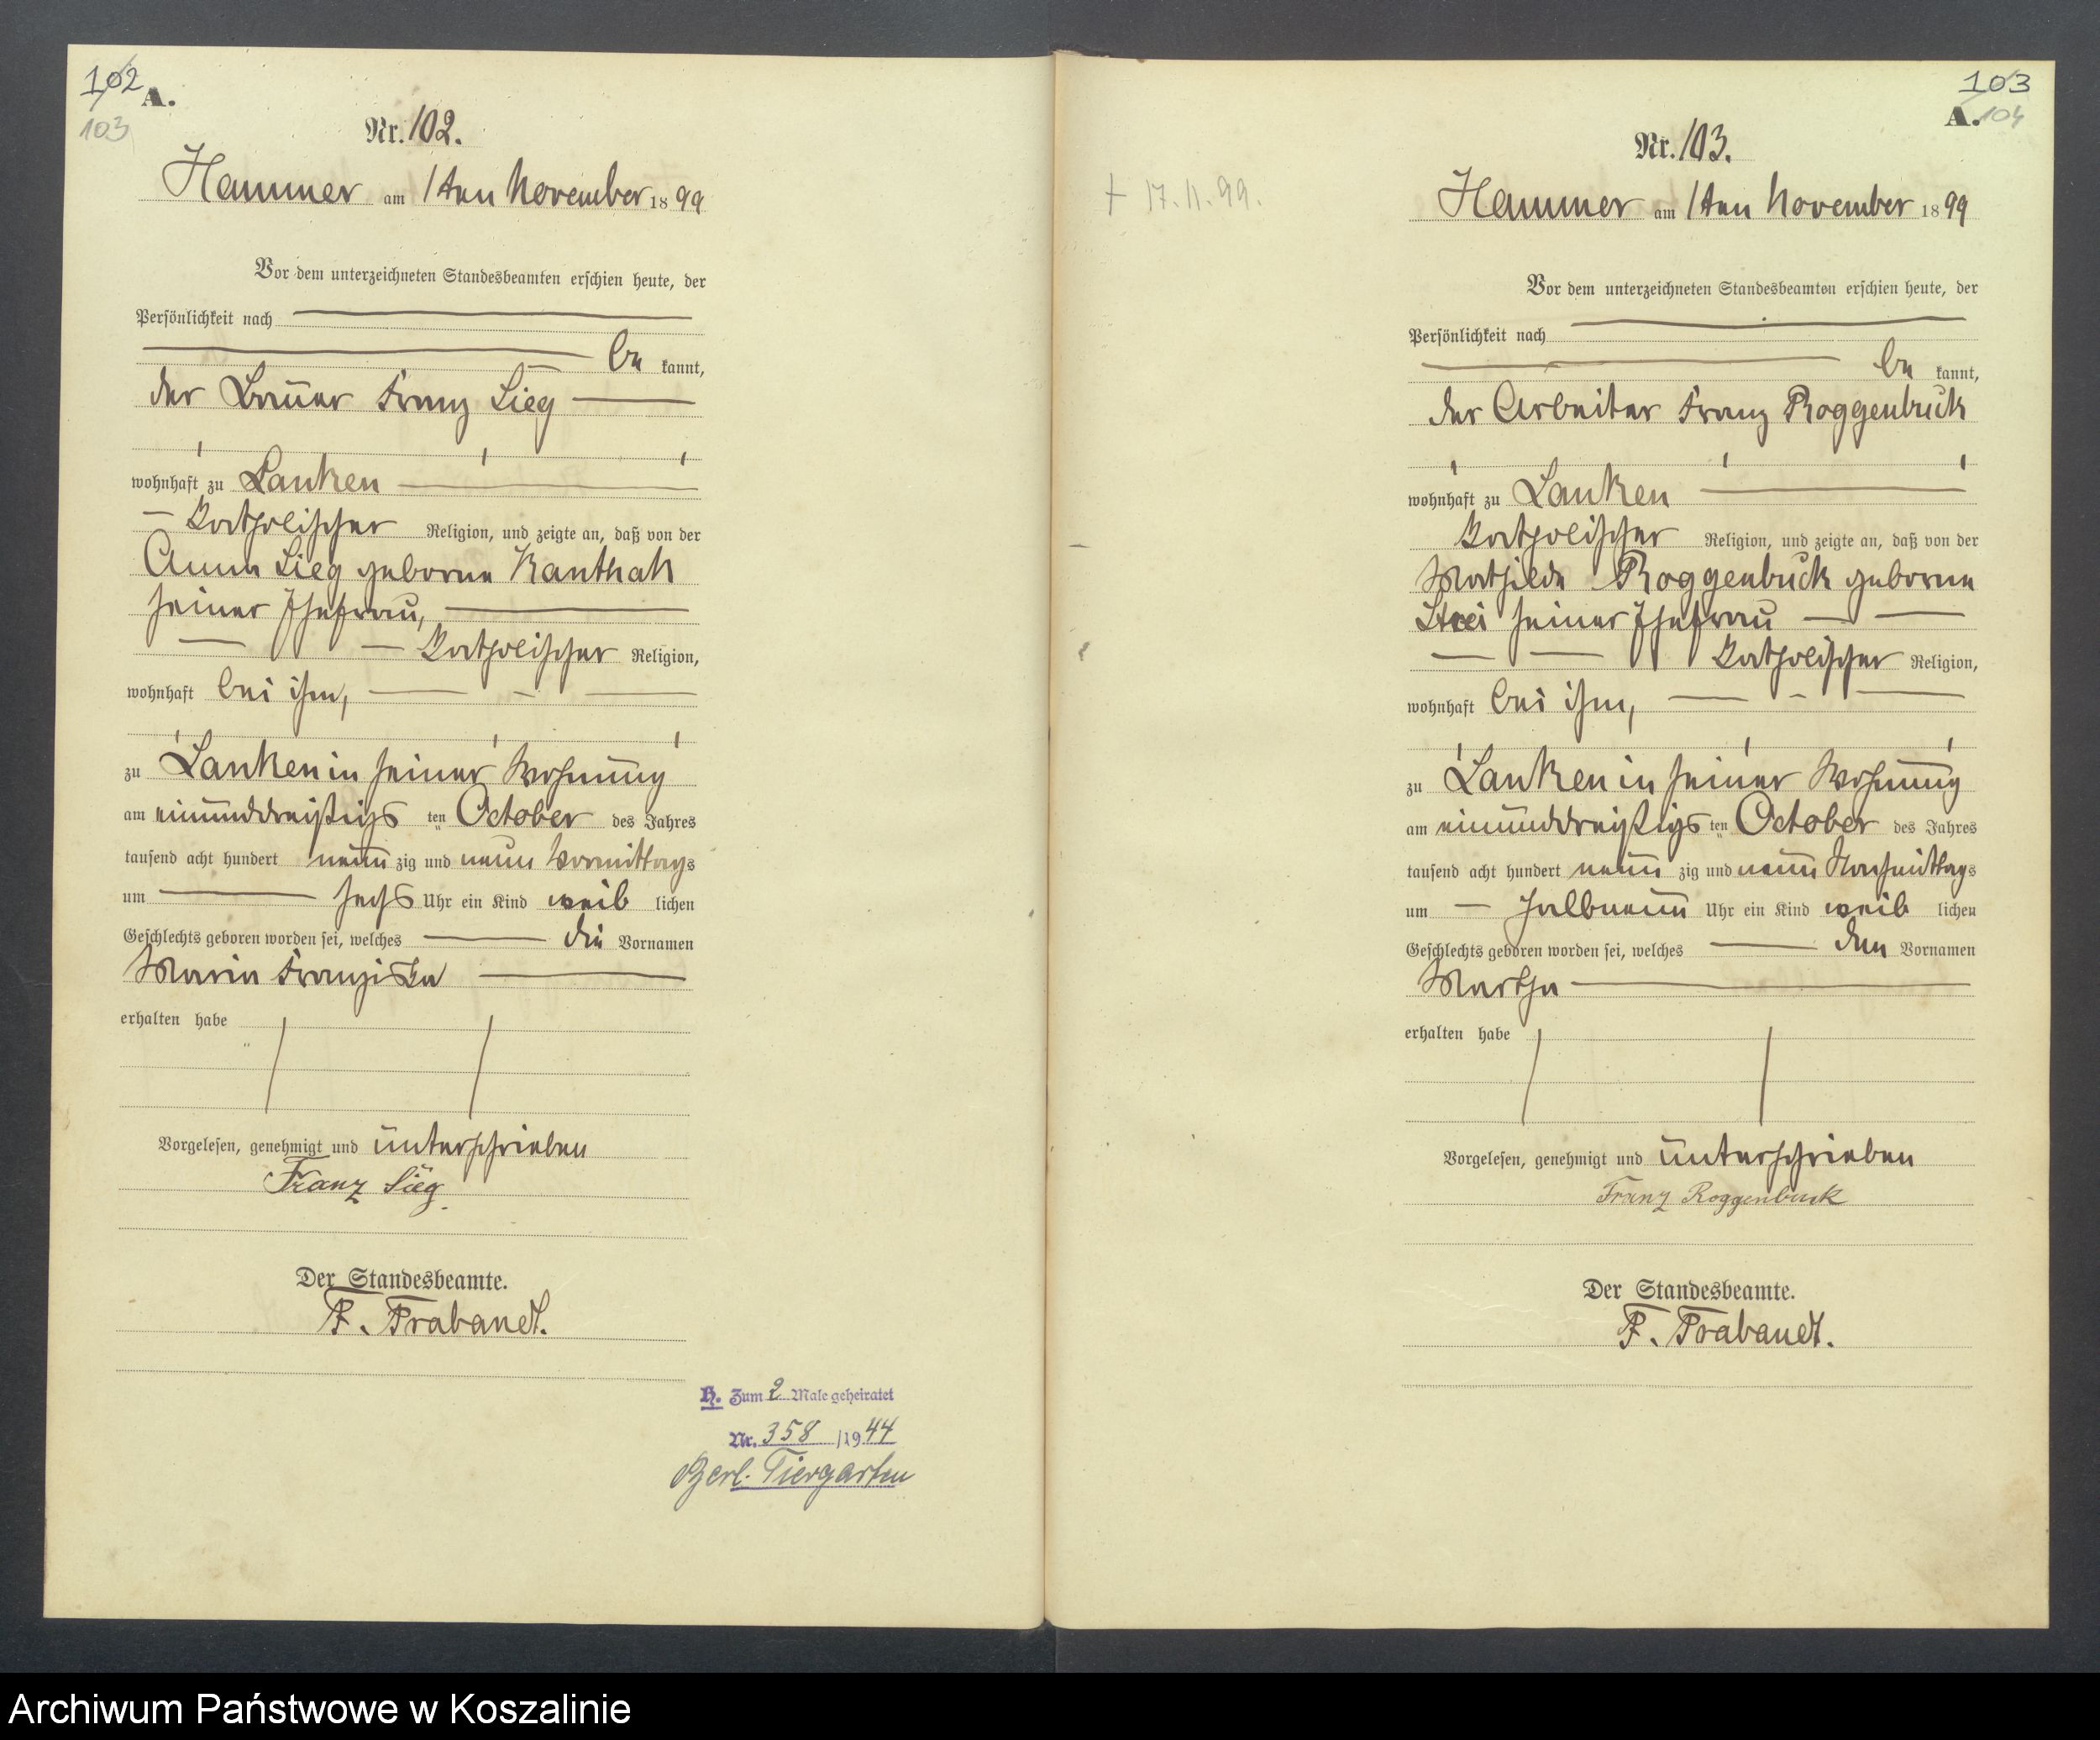 102
A.
103
Nr. 102.
Hammer am 1ten November 1899
Vor dem unterzeichneten Standesbeamten erschien heute, der
Persönlichkeit nach
be kannt,
der Bauer Franz Sieg
wohnhaft zu Lanken
katholischer Religion, und zeigte an, daß von der
Anna Sieg geborne Kanthak
seiner Ehefrau,
katholischer Religion,
wohnhaft bei ihm,
zu Lanken in seiner Wohnung
am einunddreißigs ten October des Jahres
tausend acht hundert neun zig und neun Vormittags
um sechs Uhr ein Kind weib lichen
Geschlechts geboren worden sei, welches die Vornamen
Maria Franziska
erhalten habe
Vorgelesen, genehmigt und unterschrieben
Franz Sieg
Der Standesbeamte.
F. Trabandt.
H. Zum 2 Male geheiratet
Nr. 358 /1944
Berl. Tiergarten
103
A. 104
Nr. 103.
+ 17.11.99.
Hammer am 1ten November 1899
Vor dem unterzeichneten Standesbeamten erschien heute, der
Persönlichkeit nach
be kannt,
der Arbeiter Franz Roggenbuck
wohnhaft zu Lanken
katholischer Religion, und zeigte an, daß von der
Mathilde Roggenbuck geborne
Strei seiner Ehefrau
katholischer Religion,
wohnhaft bei ihm,
zu Lanken in seiner Wohnung
am einunddreißigs ten October des Jahres
tausend acht hundert neun zig und neun Nachmittags
um halbneun Uhr ein Kind weib lichen
Geschlechts geboren worden sei, welches den Vornamen
Martha
erhalten habe
Vorgelesen, genehmigt und unterschrieben
Franz Roggenbuck
Der Standesbeamte.
F. Trabandt.
Archiwum Państwowe w Koszalinie